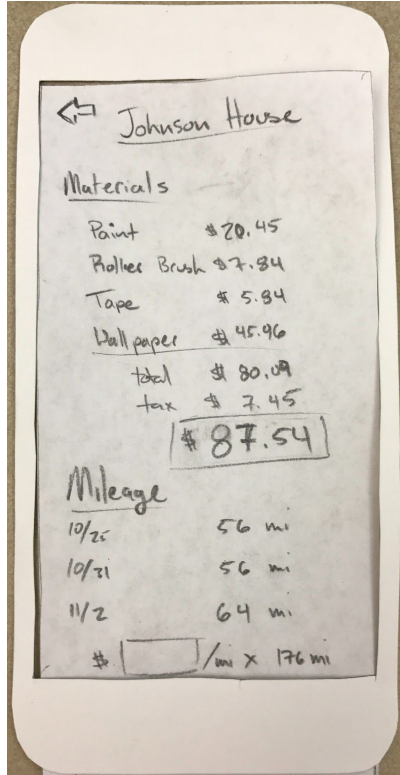 Johnson House
Materials
Paint $20.45
Roller Brush $7.84
Tape $ 5.84
Wallpaper $45.96
total $ 80.09
tax $ 7.45
$ 87.54
Mileage
10/25 56 mi
10/31 56 mi
11/2 64 mi
$ /mi x 176 mi